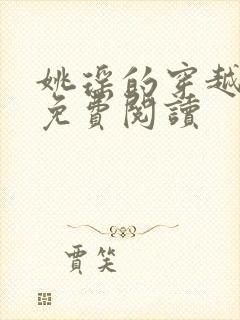 姚瑤的穿越
免費閱讀
賈笑